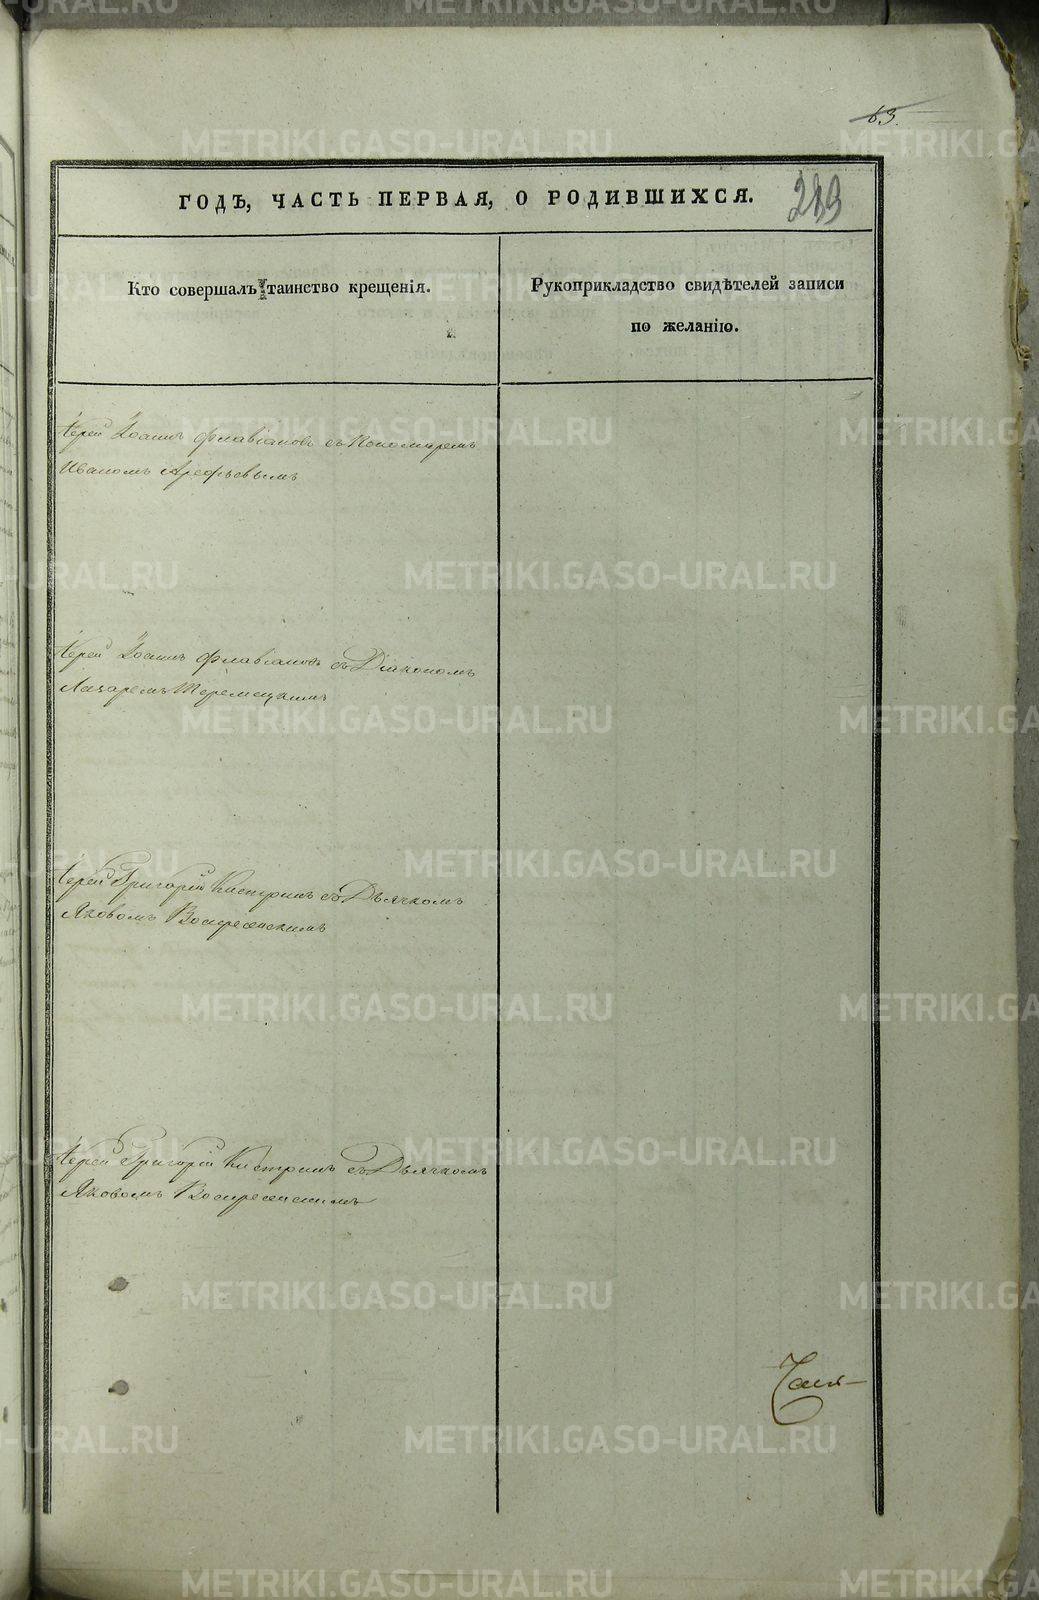 63.
ГОДЪ, ЧАСТЬ ПЕРВАЯ, О РОДИВШИХСЯ.
289
Кто совершалъ таинство крещенія.
Рукоприкладство свидѣтелей записи
по желанію.
Іерей Іоаннъ Флавіановъ съ Пономаремъ
Иваномъ Арефьевымъ
Іерей Іоаннъ Флавіановъ съ Діакономъ
Лазаремъ
Іерей Григорій Кистринъ съ Дьячкомъ
Яковомъ Воскресенскимъ
Іерей Григорій Кистринъ съ Дьячкомъ
Яковомъ Воскресенскимъ
METRIKI.GASO-URAL.RU